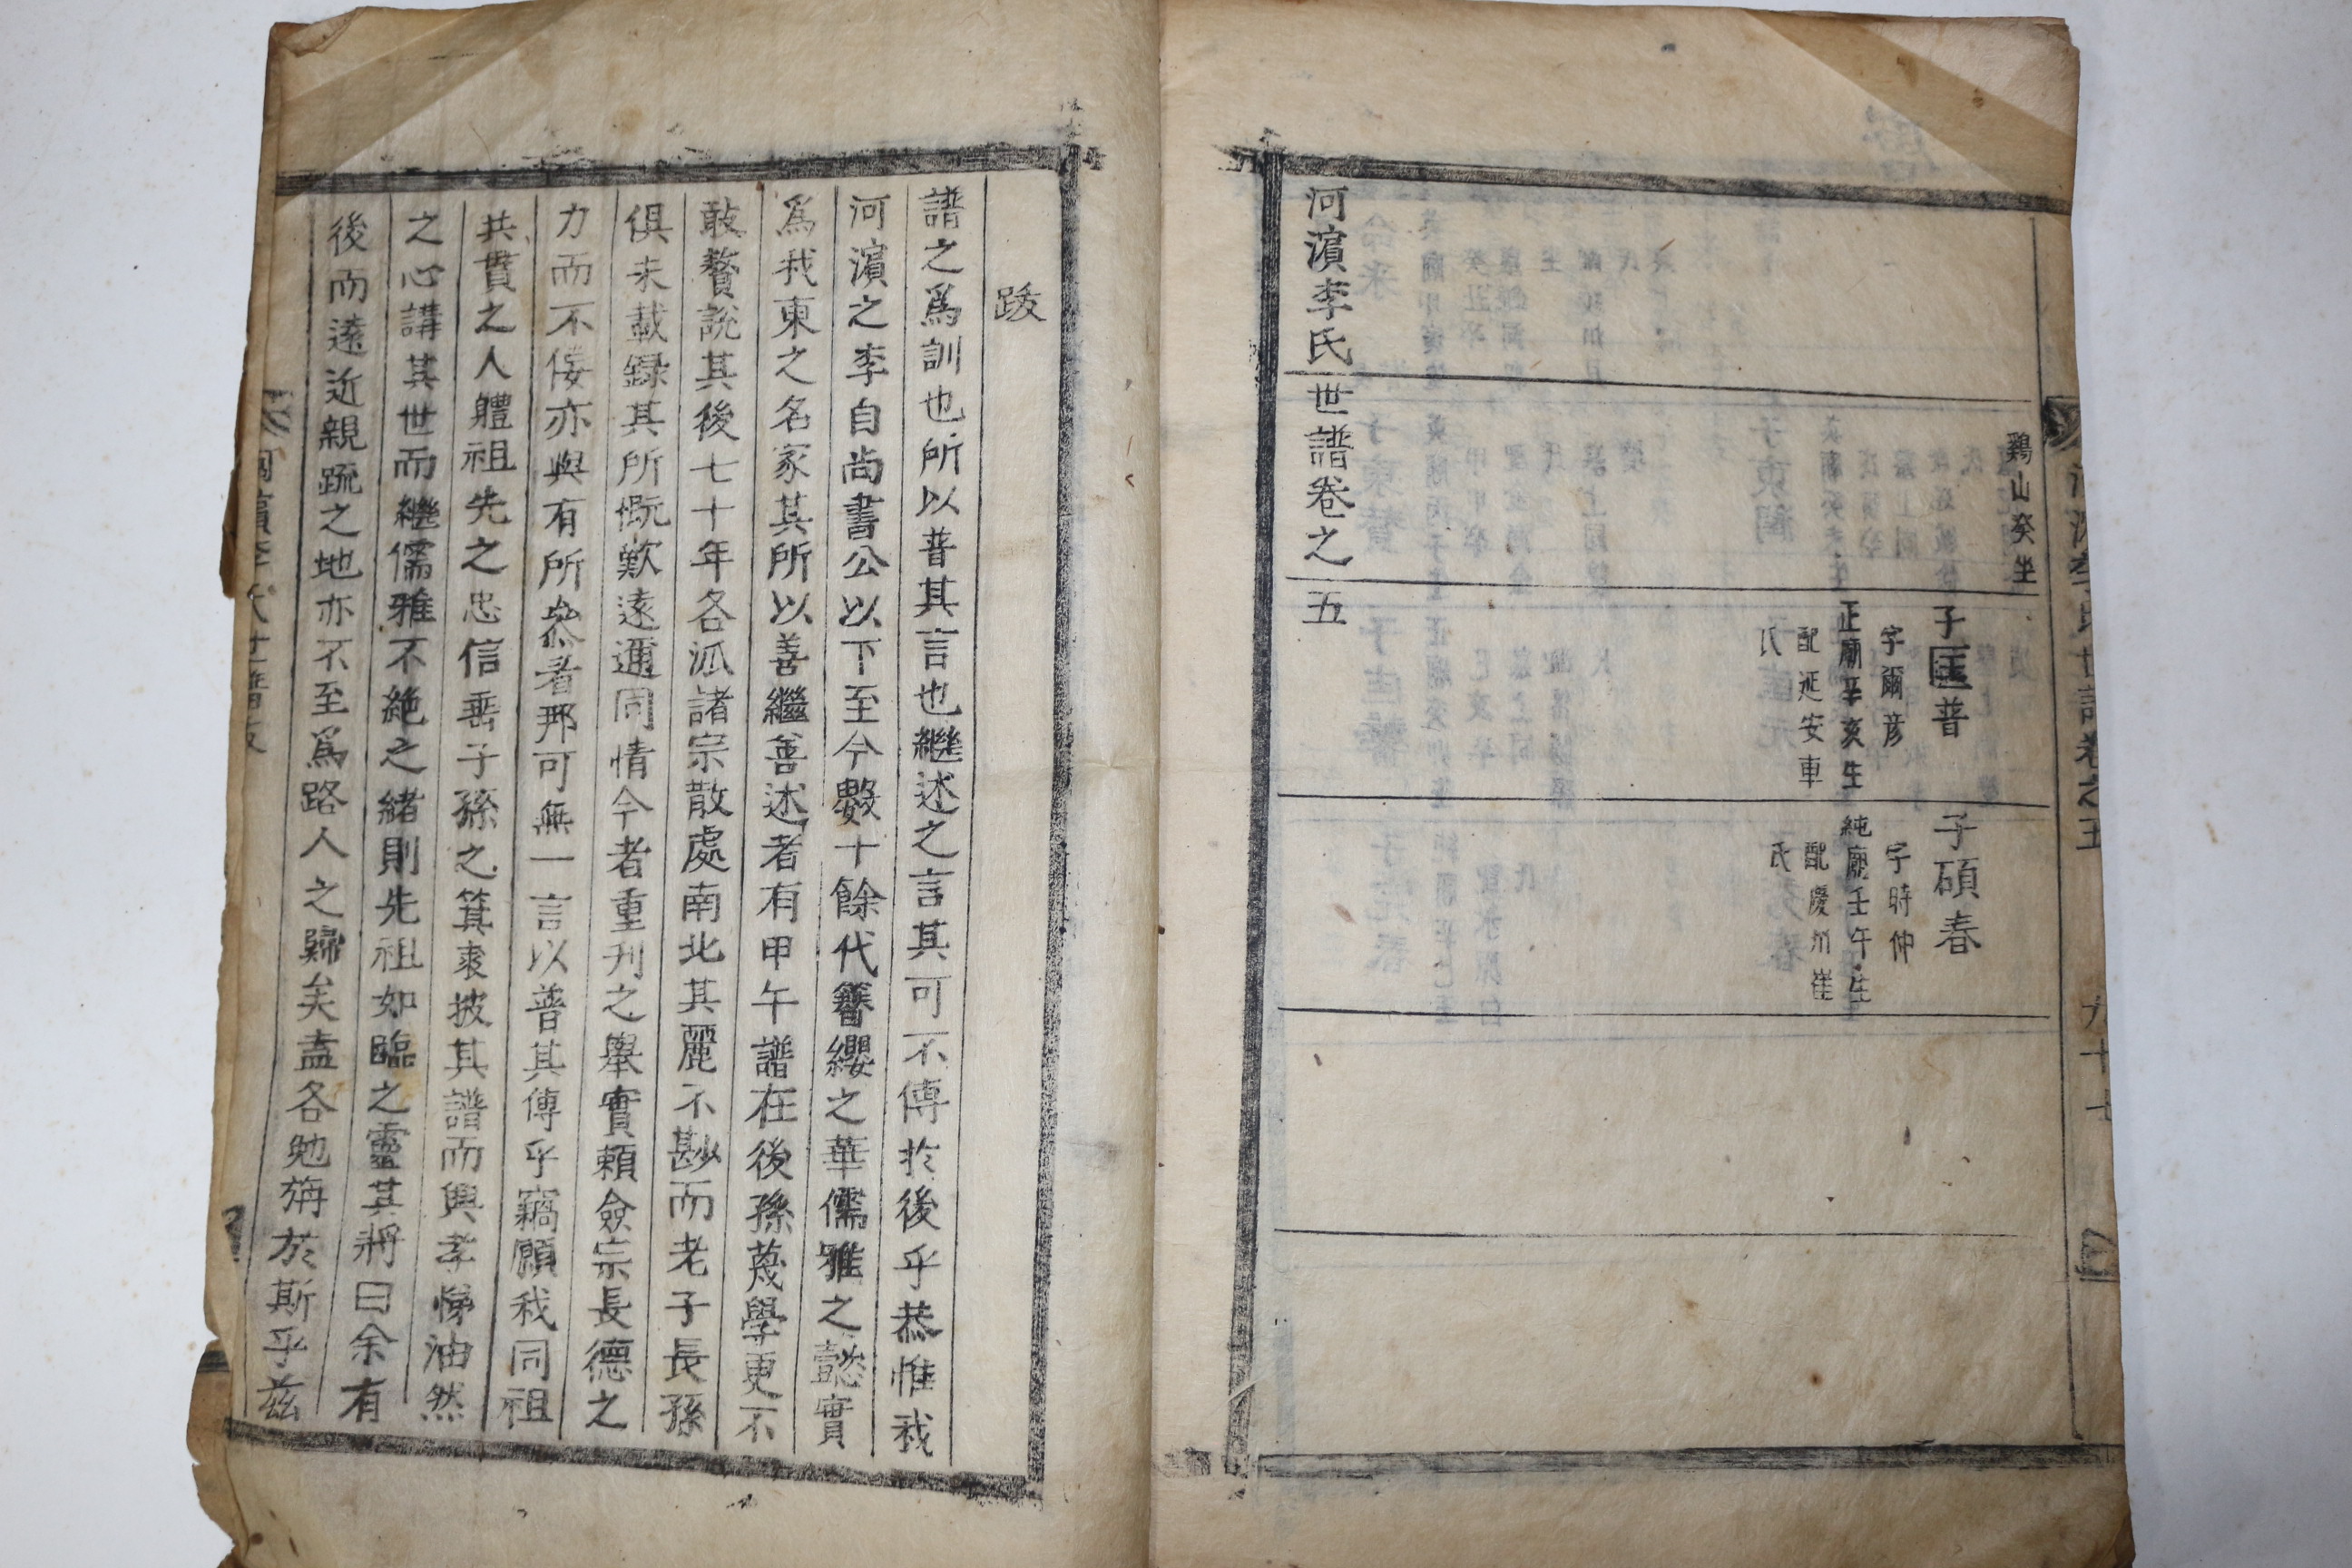 河濱李氏世譜卷之五
鷄山癸坐
子匡普
字爾彦
正廟辛亥生
配延安車
氏
子碩春
字時仲
純廟壬午生
配慶州崔
氏
河濱李氏世譜卷之五
跋
譜之爲訓也所以普其言也繼述之言其可不傳於後乎恭惟我
河濱之李自尙書公以下至今數十餘代簪纓之華儒雅之懿實
爲我東之名家其所以善繼善述者有甲午譜在後孫蔑學更不
敢贅說其後七十年各派諸宗散處南北其麗不尠而老子長孫
俱未載錄其所慨歎遠邇同情今者重刊之擧實賴僉宗長德之
力而不佞亦與有所叅者那可無一言以普其傳乎竊願我同祖
共貫之人體祖先之忠信垂子孫之箕裘披其譜而興孝悌油然
之心講其世而繼儒雅不絶之緖則先祖如臨之靈其將曰余有
後而遠近親疏之地亦不至爲路人之歸矣盍各勉旃於斯乎玆